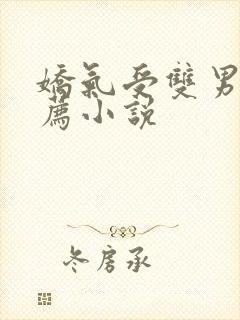 嬌氣受雙男
薦小說
冬房承